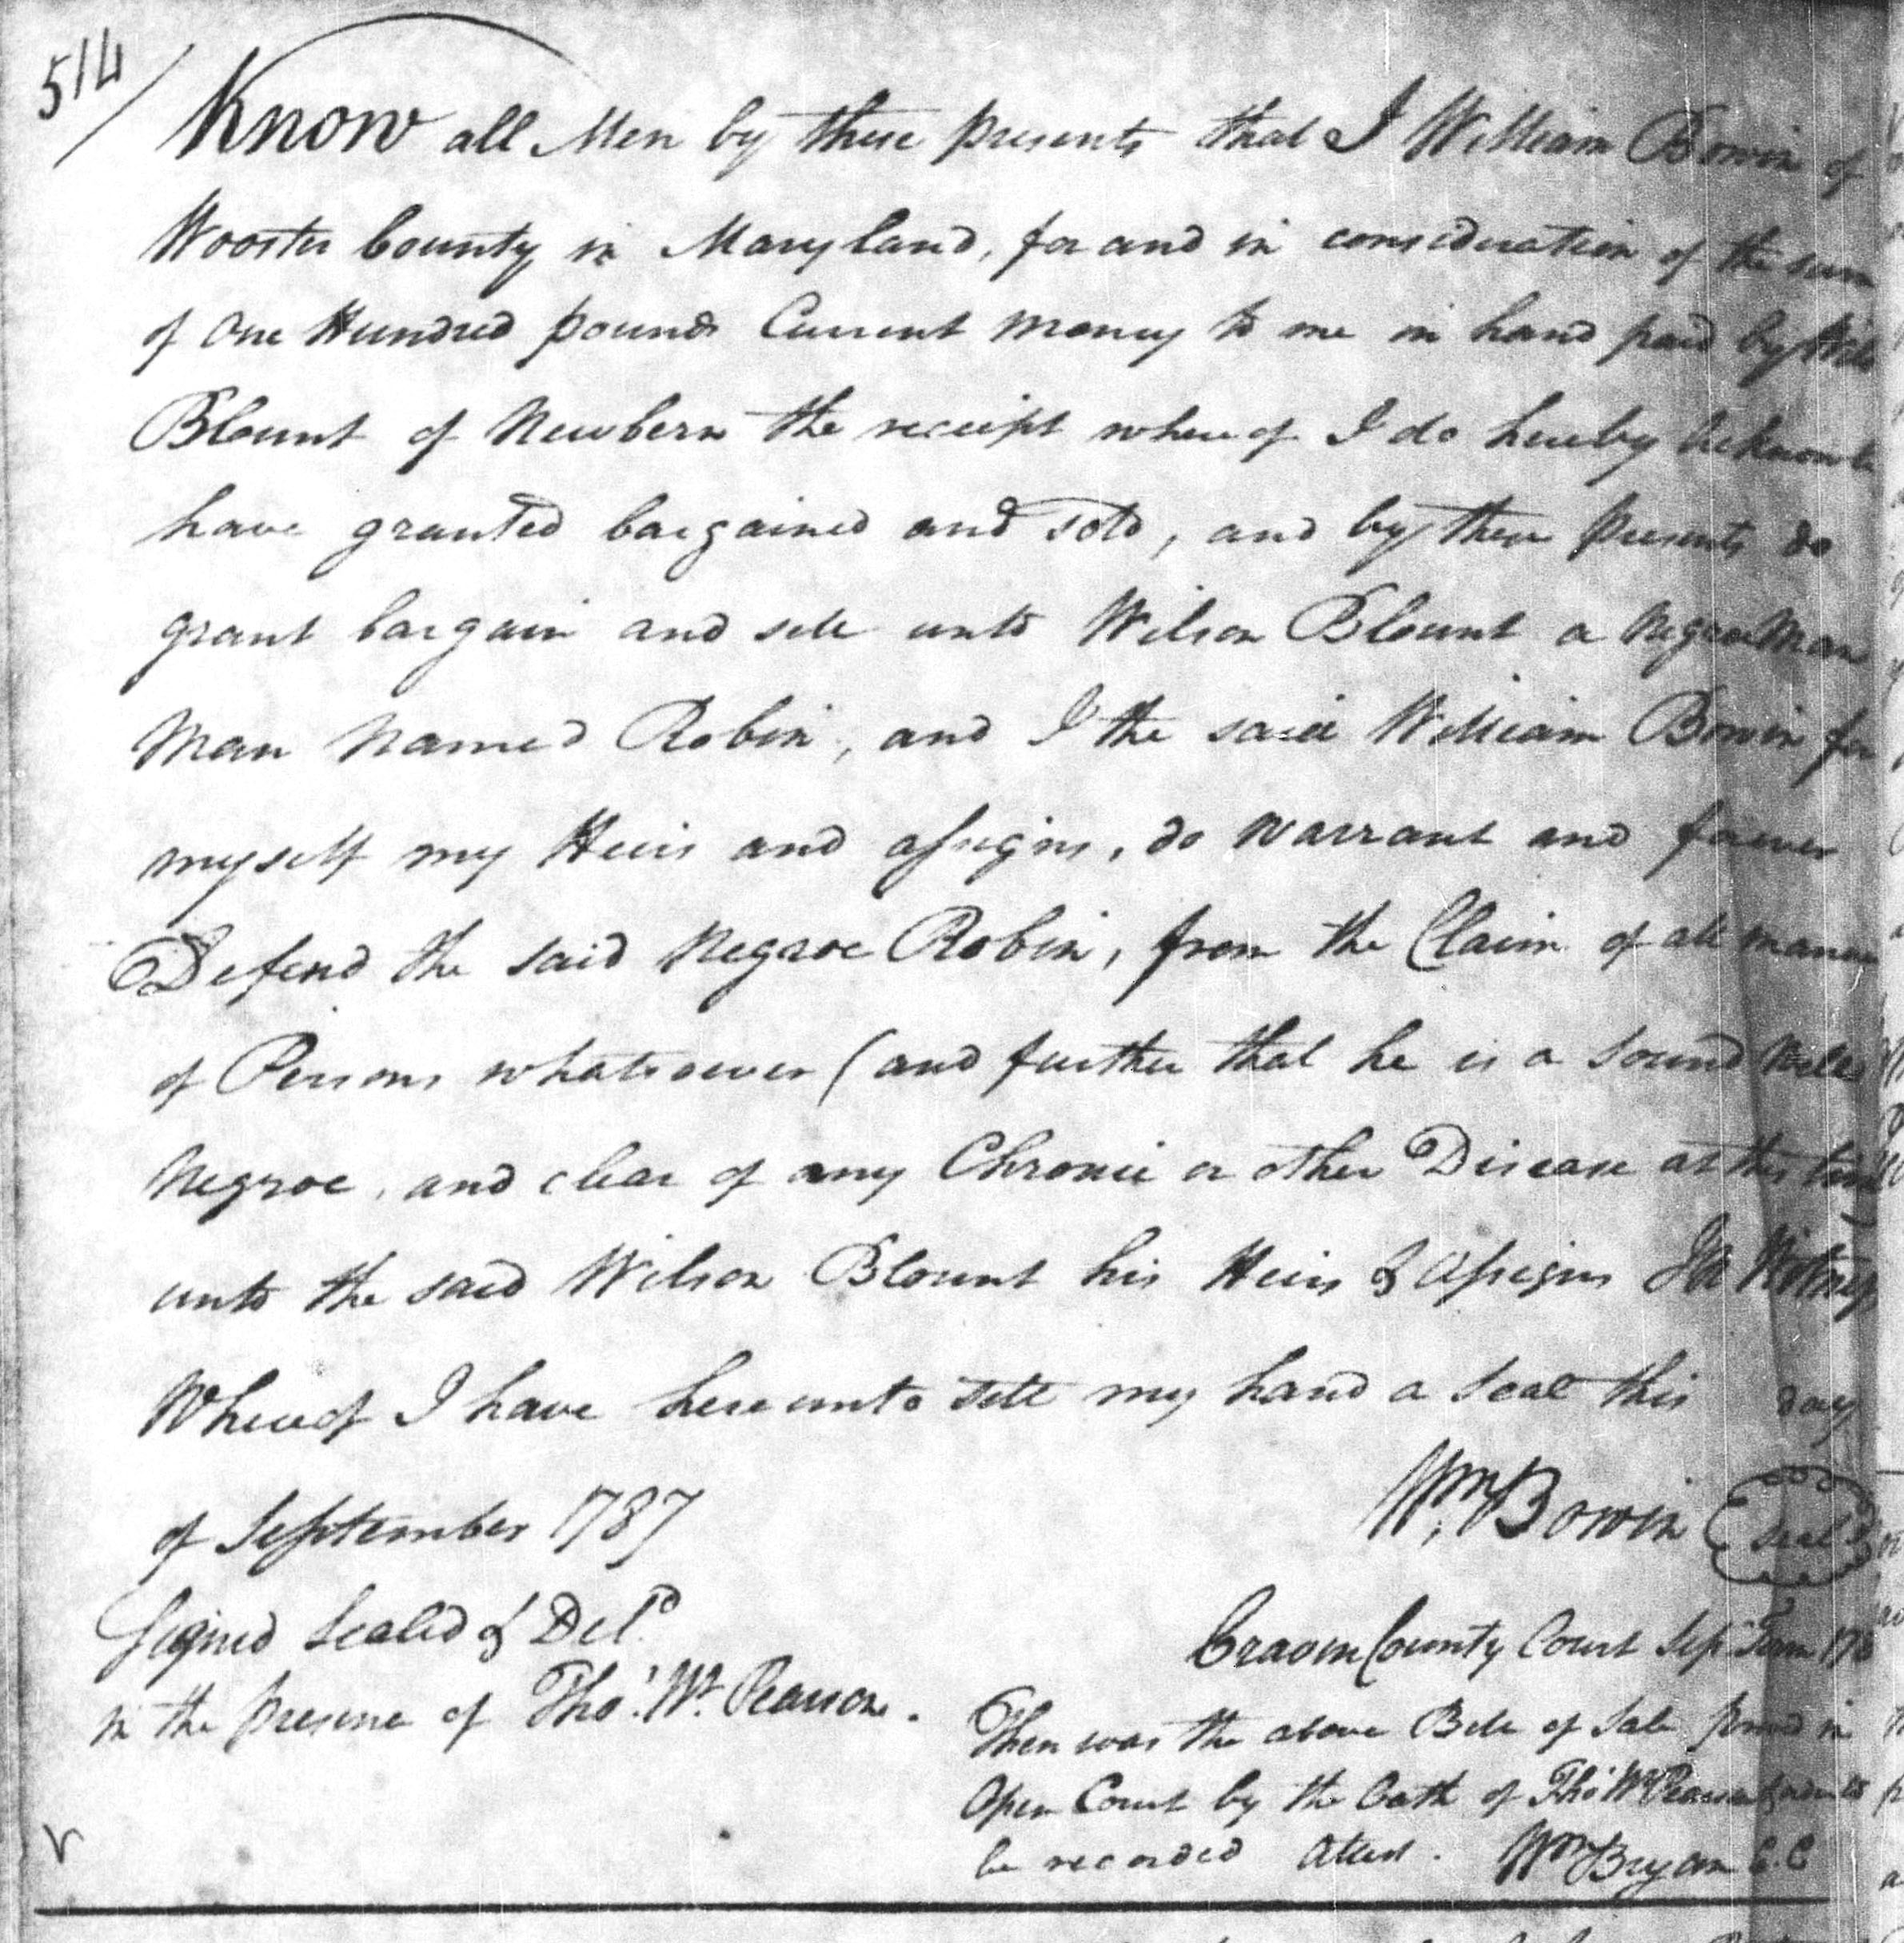 514
Know all Men by these presents that I William Bowin of
Wooster County in Maryland, for and in consideration of the sum
of One Hundred pounds Current money to me in hand paid by Wils
Blount of Newbern the receipt whereof I do hereby Acknowle
have granted bargained and sold, and by these presents do
grant bargain and sell unto Wilson Blount a Negroe Man
Man Named Robin, and I the said William Bowin for
myself my Heirs and assigns, do warrant and forever
Defend the said Negroe Robin, from the Claim of all manner
of Persons whatsoever (and further that he is a sound
Negroe, and clear of any Chronic or other Disease at this time)
unto the said Wilson Blount his Heirs & Assigns In Witness
Whereof I have hereunto sett my hand a seal this day
of September 1787
Wm. Bowin seal
Signed Sealed & Deld
in the presence of Thos. Wt. Pearson.
Craven County Court Sep Term 178
Then was the above Bill of Sale proved in
Open Court by the Oath of Thos Wt Pearson &
be recorded Attest. Wm Bryan C.C